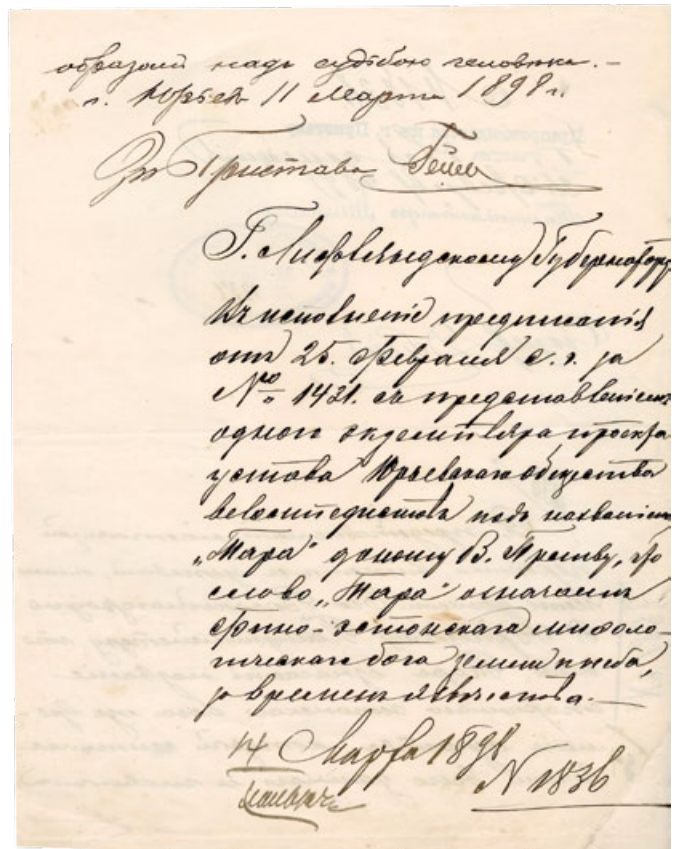 образомъ надъ судьбою человѣка. —
г. Юрьевъ 11 Марта 1898 г.
За Пристава
Г. Лифляндскому Губернатору
Въ исполненіе предписанія
отъ 25. Февраля с. г. за
№ 1431. съ представленіемъ
одного экземпляра проекта
устава Юрьевскаго общества
велосипедистовъ подъ названіемъ
„Тара“ доношу В. Прев-ву, что
слово „Тара“ означаетъ
финно-эстонскаго мифоло-
гическаго бога земли и неба,
во временъ язычества. —
14 Марта 1898
N 1836